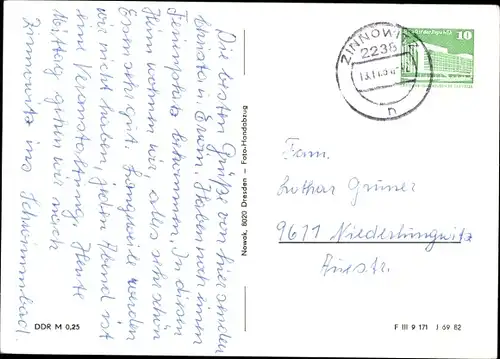 Die besten Grüße von hier senden
Renate u. Erwin. Haben noch einen
Ferienplatz bekommen. In diesem
Heim wohnen wir, alles sehr schön
Essen sehr gut. Langeweile werden
wir nicht haben, jeden Abend ist
eine Veranstaltung. Heute
Mittag gehen wir nach
Zinnowitz ins Schwimmbad.
Nowak, 8020 Dresden — Foto-Handabzug
DDR M 0,25
ZINNOWITZ
2238
n
10
Fam.
Lothar Gruner
9611 Niederlungwitz
F III 9 171 J 69 82